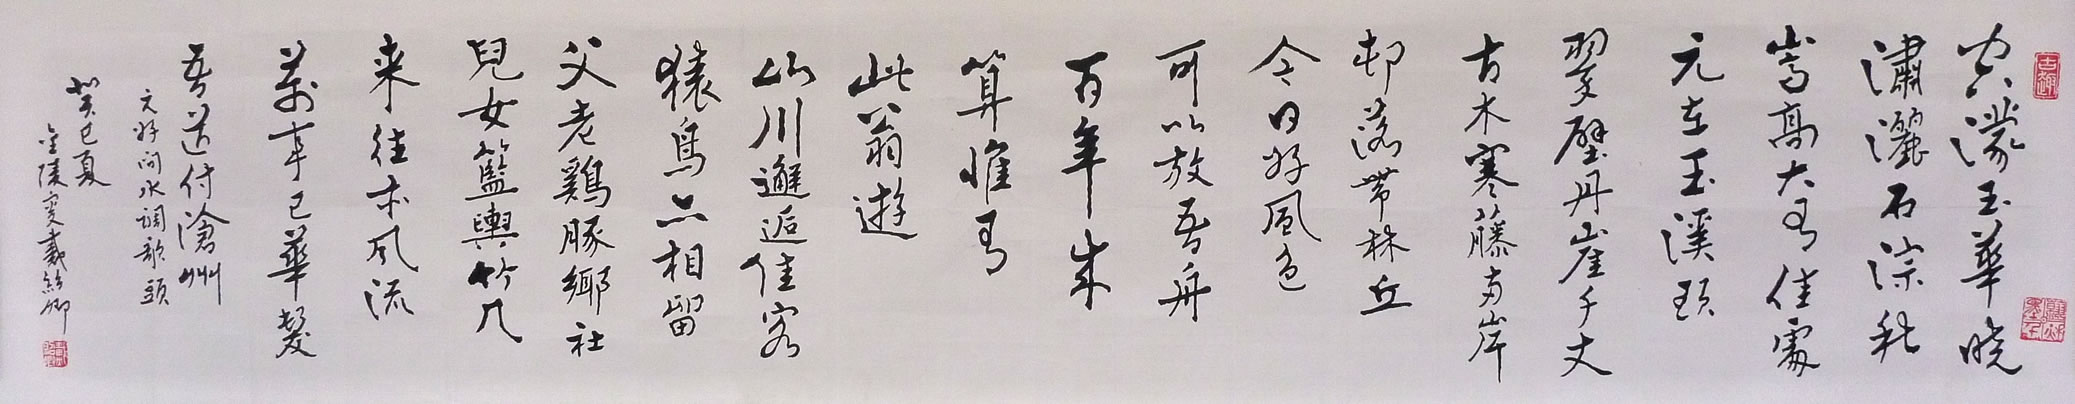 古趣
空濛玉華晓
瀟灑石淙秋
嵩高大有佳處
元在玉溪頭
翠壁丹崖千丈
古木寒藤両岸
邨落帶林丘
今日好風色
可以放吾舟
百年来
算惟有
此翁遊
山川邂逅佳客
猿鳥亦相留
父老鷄豚鄉社
兒女籃輿竹几
来往亦风流
萬事已華髮
吾道付滄州
元好问水調歌頭
癸巳夏
金陵